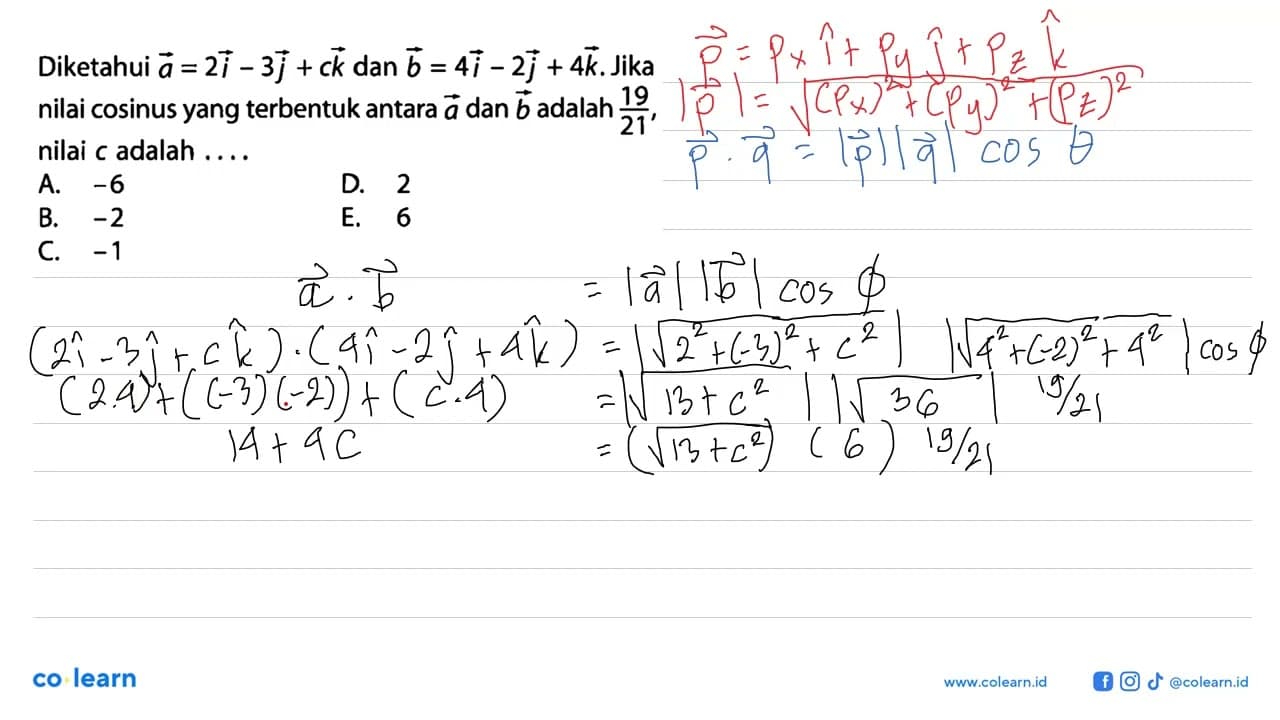 Diketahui a⃗ = 2i⃗ – 3j⃗ + ck⃗ dan b⃗ = 4i⃗ – 2j⃗ + 4k⃗. Jika
nilai cosinus yang terbentuk antara a⃗ dan b⃗ adalah 19/21,
nilai c adalah ....
A. –6
B. –2
C. –1
D. 2
E. 6
p⃗ = Px î + Py ĵ + Pz k̂
|p⃗| = √((Px)² + (Py)² + (Pz)²)
p⃗ . q⃗ = |p⃗| |q⃗| cos θ
a⃗ . b⃗ = |a⃗| |b⃗| cos ϕ
(2î - 3ĵ + ck̂) . (4î - 2ĵ + 4k̂) = |√(2² + (-3)² + c²)| |√(4² + (-2)² + 4²)| cos ϕ
(2.4) + ((-3)(-2)) + (c.4) = |√(13 + c²)| |√36| 19/21
14 + 4c = (√(13 + c²)) (6) 19/21
co·learn
www.colearn.id
@colearn.id